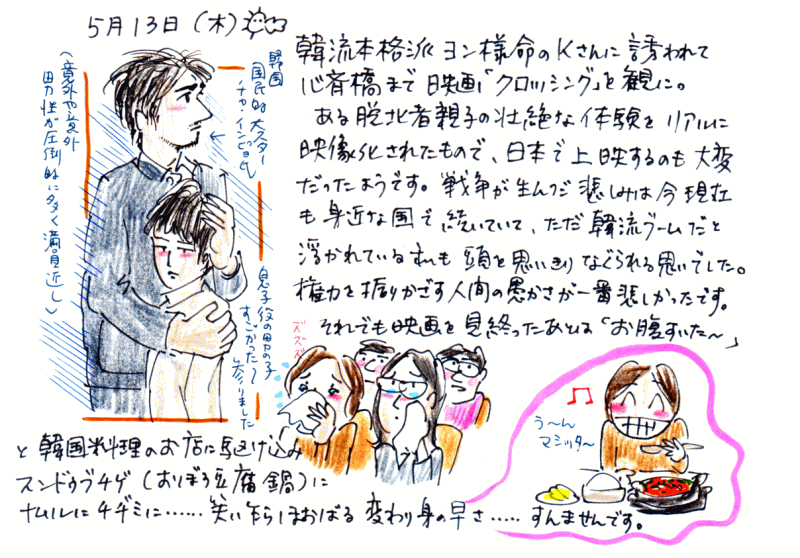 5月13日(木)
韓流本格派ヨン様命のKさんに誘われて
心斉橋まで映画「クロッシング」を観に。
ある脱北者親子の壮絶な体験をリアルに
映像化されたもので、日本で上映するのも大変
だったようです。戦争が生んだ悲しみは今現在
も身近な国で続いていて、ただ韓流ブームだと
浮かれている私も頭を思いきりなぐられる思いでした。
権力を振りかざす人間の愚かさが一番悲しかったです。
それでも映画を見終ったあとは「お腹すいた〜」
と韓国料理のお店に駆け込み
スンドゥブチゲ(おぼろ豆腐鍋)に
ナムルにチヂミに……笑いながらほおばる変わり身の早さ……すんませんです。
韓国
国民的大スター
チャ・インピョ氏
(意外や意外
男性が圧倒的に多く満員近し)
息子役の男の子
すごかった〜
参りました
ズズズ
う〜ん
マシッタ〜